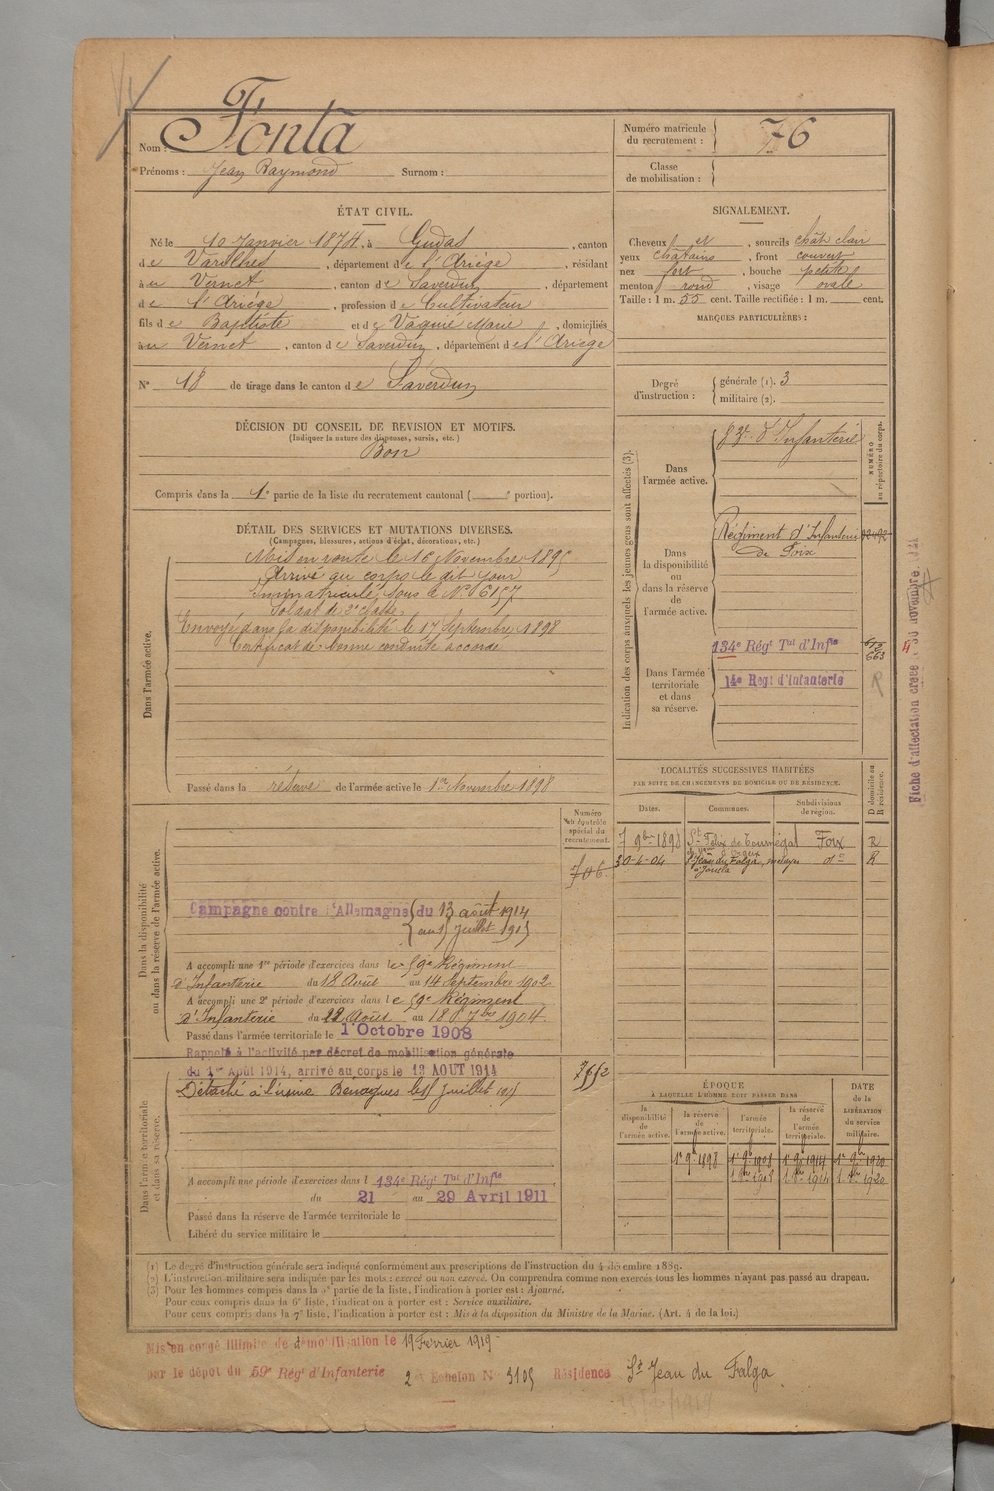 Nom : Fonta
Prénoms : Jean Raymond Surnom :
Numéro matricule du recrutement : 76
Classe de mobilisation :
ÉTAT CIVIL.
Né le 10 Janvier 1874, à Gudas, canton
de Varilhes, département de l'Ariège, résidant
à Vernet, canton de Saverdun, département
de l'Ariège, profession de Cultivateur
fils de Baptiste et de Vaquié Marie, domiciliés
à Vernet, canton de Saverdun, département de l'Ariège
N° 18 de tirage dans le canton de Saverdun
SIGNALEMENT.
Cheveux et, sourcils chât clair
yeux châtains, front couvert
nez fort, bouche petite
menton rond, visage ovale
Taille : 1 m. 55 cent. Taille rectifiée : 1 m. cent.
MARQUES PARTICULIÈRES :
Degré d'instruction : générale (1). 3
militaire (2).
DÉCISION DU CONSEIL DE REVISION ET MOTIFS.
(Indiquer la nature des dispenses, sursis, etc.)
Bon
Compris dans la 1e partie de la liste du recrutement cantonal ( e portion).
DÉTAIL DES SERVICES ET MUTATIONS DIVERSES.
(Campagnes, blessures, actions d'éclat, décorations, etc.)
Dans l'armée active.
Mis en route le 16 Novembre 1895
Arrivé au corps le dit jour
Immatriculé sous le N° 6157
Soldat de 2e classe
Envoyé dans la disponibilité le 17 Septembre 1898
Certificat de bonne conduite accordé
Passé dans la réserve de l'armée active le 1er Novembre 1898
Indication des corps auxquels les jeunes gens sont affectés (3).
NUMÉRO au répertoire du corps.
Dans l'armée active.
83e d'Infanterie
Dans la disponibilité ou dans la réserve de l'armée active.
Régiment d'Infanterie
de Foix
Dans l'armée territoriale et dans sa réserve.
134e Rég Tal d'Infie
14e Regt d'Infanterie
Fiche d'affectation créée 30 novembre
LOCALITÉS SUCCESSIVES HABITÉES
PAR SUITE DE CHANGEMENTS DE DOMICILE OU DE RÉSIDENCE.
Dates. Communes. Subdivisions de région. D domicile ou R résidence.
7 9bre 1898 St Félix de Tournégat Foix R
30-4-04 St Jean du Falga do R
Dans la disponibilité ou dans la réserve de l'armée active.
Numéro au contrôle spécial du recrutement.
706
Campagne contre l'Allemagne du 13 août 1914
au 5 juillet 1915
A accompli une 1re période d'exercices dans le 59e Régiment
d'Infanterie du 18 Août au 14 Septembre 1902
A accompli une 2e période d'exercices dans le 59e Régiment
d'Infanterie du 22 Août au 18 7bre 1904
Passé dans l'armée territoriale le 1 Octobre 1908
Dans l'armée territoriale et dans sa réserve.
Rappelé à l'activité par décret de mobilisation générale
du 1er Août 1914, arrivé au corps le 13 AOUT 1914
Détaché à l'usine Bénagues le 5 Juillet 1915
A accompli une période d'exercices dans l 134e Régt Tal d'Infie
du 21 au 29 Avril 1911
Passé dans la réserve de l'armée territoriale le
Libéré du service militaire le
ÉPOQUE À LAQUELLE L'HOMME DOIT PASSER DANS
DATE de la LIBÉRATION du service militaire.
la disponibilité de l'armée active. la réserve de l'armée active. l'armée territoriale. la réserve de l'armée territoriale.
1er 9bre 1898 1er 9bre 1908 1er 9bre 1914 1er 9bre 1920
(1) Le degré d'instruction générale sera indiqué conformément aux prescriptions de l'instruction du 4 décembre 1889.
(2) L'instruction militaire sera indiquée par les mots : exercé ou non exercé. On comprendra comme non exercés tous les hommes n'ayant pas passé au drapeau.
(3) Pour les hommes compris dans la 5e partie de la liste, l'indication à porter est : Ajourné.
Pour ceux compris dans la 6e liste, l'indication à porter est : Service auxiliaire.
Pour ceux compris dans la 7e liste, l'indication à porter est : Mis à la disposition du Ministre de la Marine. (Art. 4 de la loi.)
Mis en congé illimité de démobilisation le 19 Février 1919
par le dépot du 59e Rég d'Infanterie 2e Echelon N° 3105 Résidence St Jean du Falga